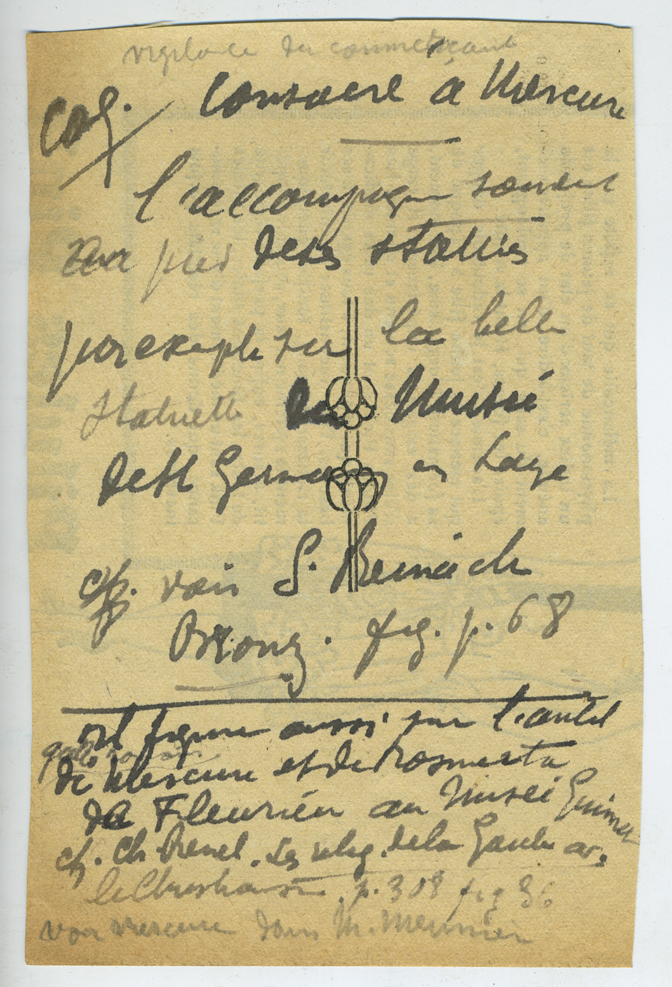 vigilance du commerçant
Coq. Consacré à Mercure
l'accompagne souvent
aux pieds de ses statues
par exemple sur la belle
statuette du Musée
de St Germain en Laye
cf. voir S. Reinach
Bronz. fig. p. 68
est figuré aussi sur l'autel
de Mercure et de Rosmerta
de Fleurieu au Musée Guimet
cf. Ch. Renel. Les relig. de la Gaule av.
le Christianisme. p. 308 fig 36
voir Mercure dans M. Meunier